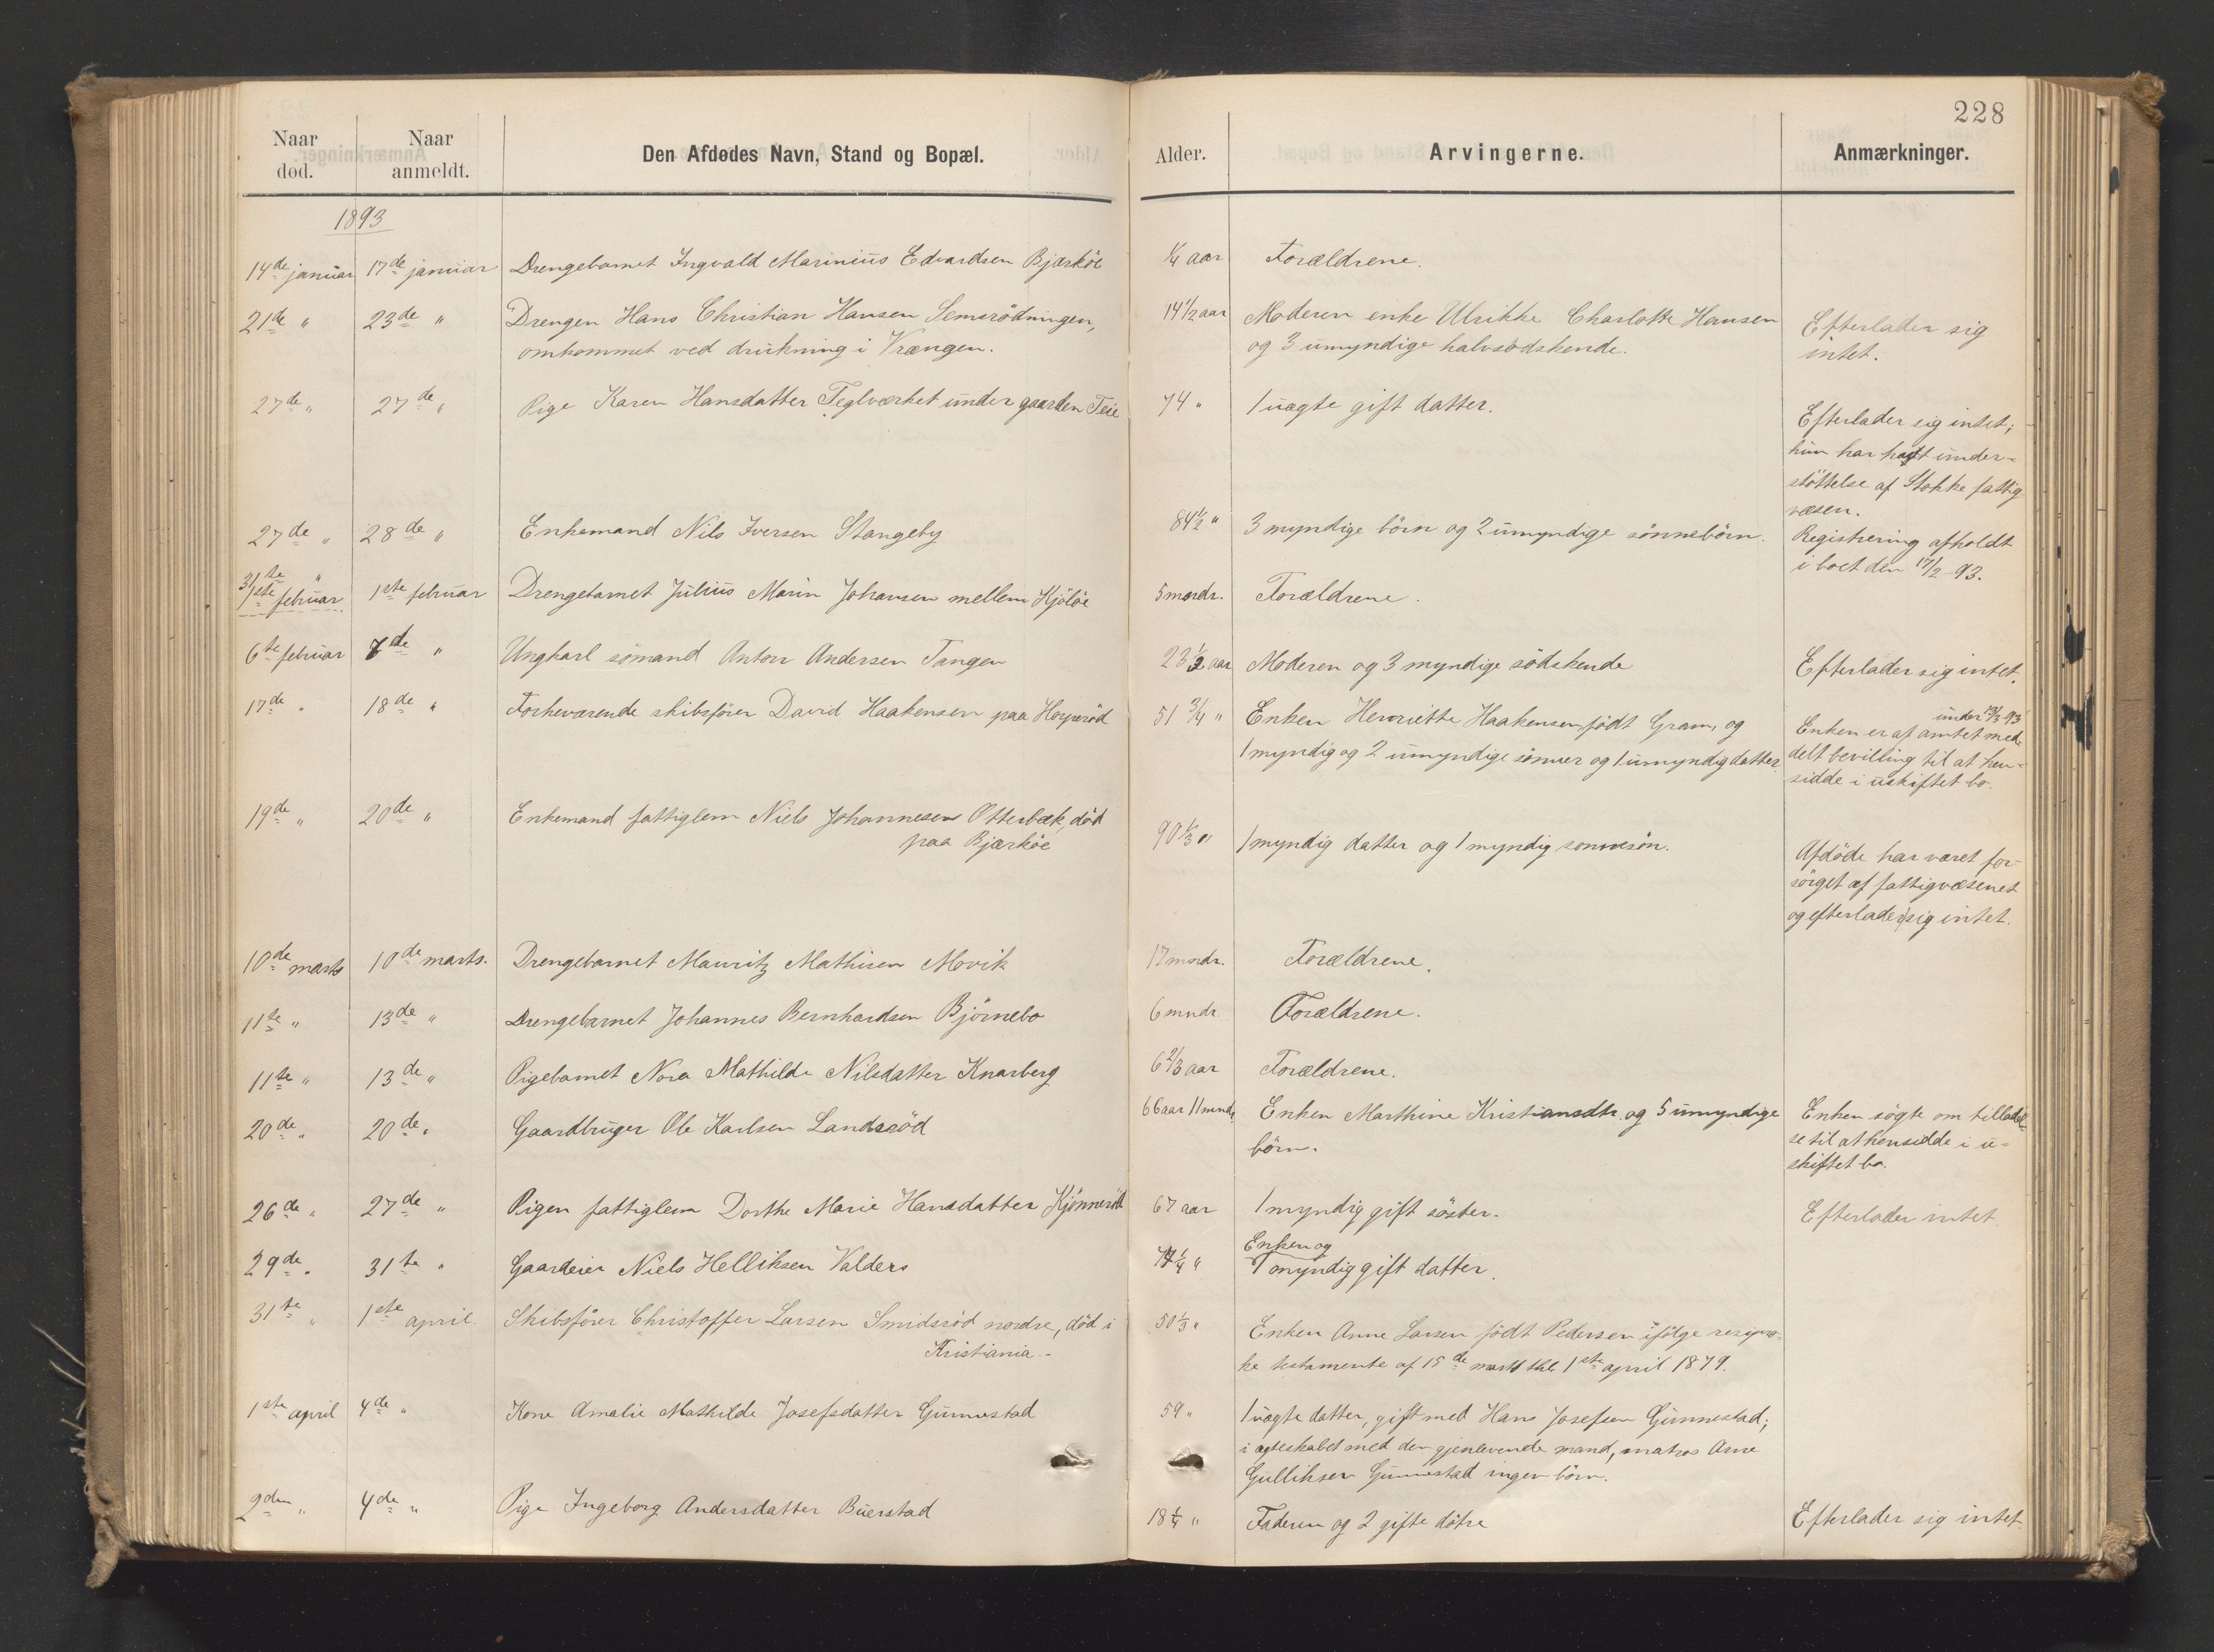 228
Naar død. Naar anmeldt. Den Afdødes Navn, Stand og Bopæl. Alder. Arvingerne. Anmærkninger.
1893
14de januar 17de januar Drengebarnet Ingvald Marinius Edvardsen Bjærköe ¼ aar Forældrene.
21de " 23de " Drengen Hans Christian Hansen Semsrödningen, 14½ aar Moderen enke Ulrikke Charlotte Hansen Efterlader sig
omkommet ved drukning i Vrængen. og 3 umyndige halvsødskende. intet.
27de " 27de " Pige Karen Hansdatter Teglværket under gaarden Teie 74 " 1 uægte gift datter. Efterlader sig intet;
hun har havt under-
støttelse af Stokke fattig
væsen.
27de " 28de " Enkemand Nils Iversen Stangeby 84½ " 3 myndige börn og 2 umyndige sönnebörn. Registrering afholdt
i boet den 17/2 93.
31te "
1ste februar 1ste februar Drengebarnet Julius Marin Johansen mellem Kjöløe 5 mndr. Forældrene.
6te februar 7de " Ungkarl sömand Anton Andersen Tangen 23½ aar Moderen og 3 myndige södskende Efterlader sig intet.
17de " 18de " Forheværende skibsfører David Haakensen paa Hoyeröd 51¾ " Enken Henriette Haakensen født Gram, og under 13/3 93
1 myndig og 2 umyndige sönner og 1 umyndig datter. Enken er af amtet med
delt bevilling til at hen-
sidde i uskiftet bo.
19de " 20de " Enkemand fattiglem Niels Johannesen Otterbæk, död 90⅓ " 1 myndig datter og 1 myndig sonnesön. Afdöde har været for-
paa Bjærköe sörget af fattigvæsenet
og efterlader sig intet.
10de marts 10de marts. Drengebarnet Mauritz Mathisen Movik 17 mndr. Forældrene.
11te " 13de " Drengebarnet Johannes Bernhardsen Björnebo 6 mndr. Forældrene.
11te " 13de " Pigebarnet Nora Mathilde Nilsdatter Knarberg 6⅔ aar Forældrene.
20de " 20de " Gaardbruger Ole Karlsen Landsröd 66 aar 11 mndr. Enken Marthine Kristiansdtr. og 5 umyndige Enken sögte om tilladel
börn. se til at hensidde i u-
skiftet bo.
26de " 27de " Pigen fattiglem Dorthe Marie Hansdatter Kjönneröd 67 aar 1 myndig gift söster. Efterlader intet.
29de " 31te " Gaardeier Niels Helliksen Valders " Enken og
1 myndig gift datter.
31te " 1ste april. Skibsfører Christoffer Larsen Smidsröd nordre, död i 50⅓ " Enken Anne Larsen födt Pedersen ifölge
Kristiania. testamente af 15de marts 1ste april 1879.
1ste april 4de " Kone Amalie Mathilde Josefsdatter Gunnestad 59 " 1 uægte datter, gift med Hans Josefsen Gunnestad;
i ægteskabet med den gjenlevende mand, matros Arne
Gulliksen Gunnestad ingen börn.
2den " 4de " Pige Ingeborg Andersdatter Buerstad 18¼ " Faderen og 2 gifte døtre Efterlader sig intet.